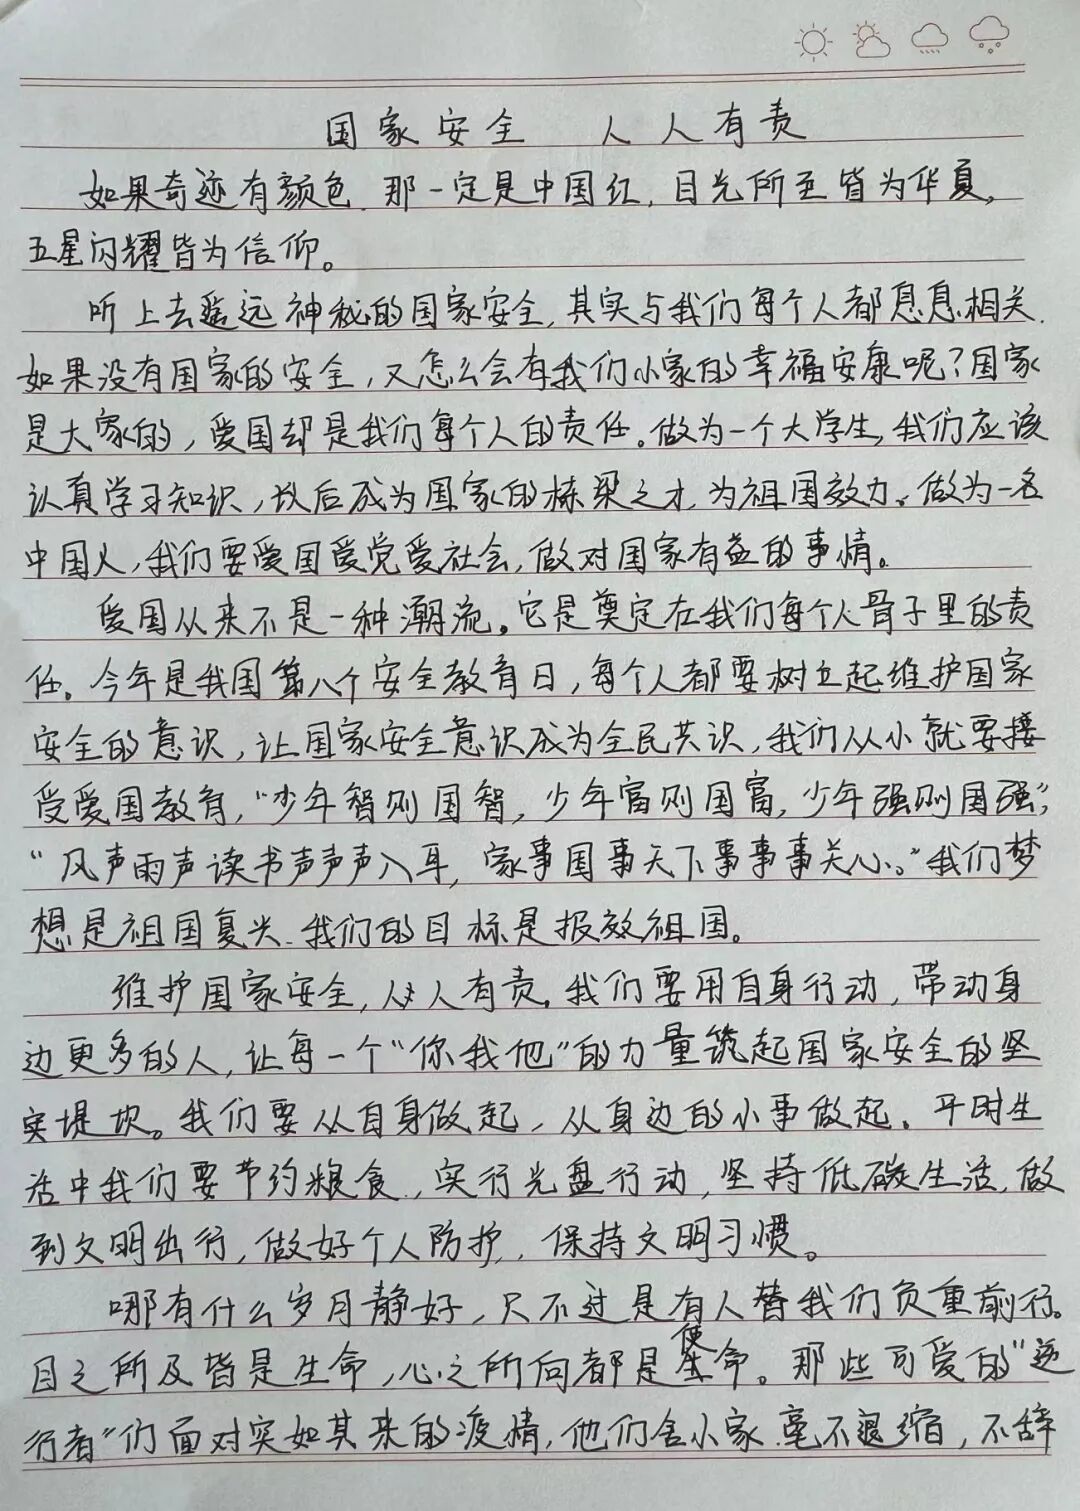 国家安全 人人有责
如果奇迹有颜色.那一定是中国红,目光所至皆为华夏,
五星闪耀皆为信仰。
听上去遥远神秘的国家安全,其实与我们每个人都息息相关.
如果没有国家的安全,又怎么会有我们小家的幸福安康呢?国家
是大家的,爱国却是我们每个人的责任。做为一个大学生,我们应该
认真学习知识,以后成为国家的栋梁之才,为祖国效力。做为一名
中国人,我们要爱国爱党爱社会,做对国家有益的事情。
爱国从来不是一种潮流。它是奠定在我们每个人骨子里的责
任。今年是我国第八个安全教育日,每个人都要树立起维护国家
安全的意识,让国家安全意识成为全民共识,我们从小就要接
受爱国教育,“少年智则国智,少年富则国富,少年强则国强”,
“风声雨声读书声声声入耳,家事国事天下事事事关心。”我们梦
想是祖国复兴.我们的目标是报效祖国。
维护国家安全,人人有责。我们要用自身行动,带动身
边更多的人,让每一个“你我他”的力量筑起国家安全的坚
实堤坎。我们要从自身做起,从身边的小事做起。平时生
活中我们要节约粮食,实行光盘行动,坚持低碳生活,做
到文明出行,做好个人防护,保持文明习惯。
哪有什么岁月静好,只不过是有人替我们负重前行。
目之所及皆是生命,心之所向都是使命。那些可爱的“逆
行者”们面对突如其来的疫情,他们舍小家.毫不退缩,不辞